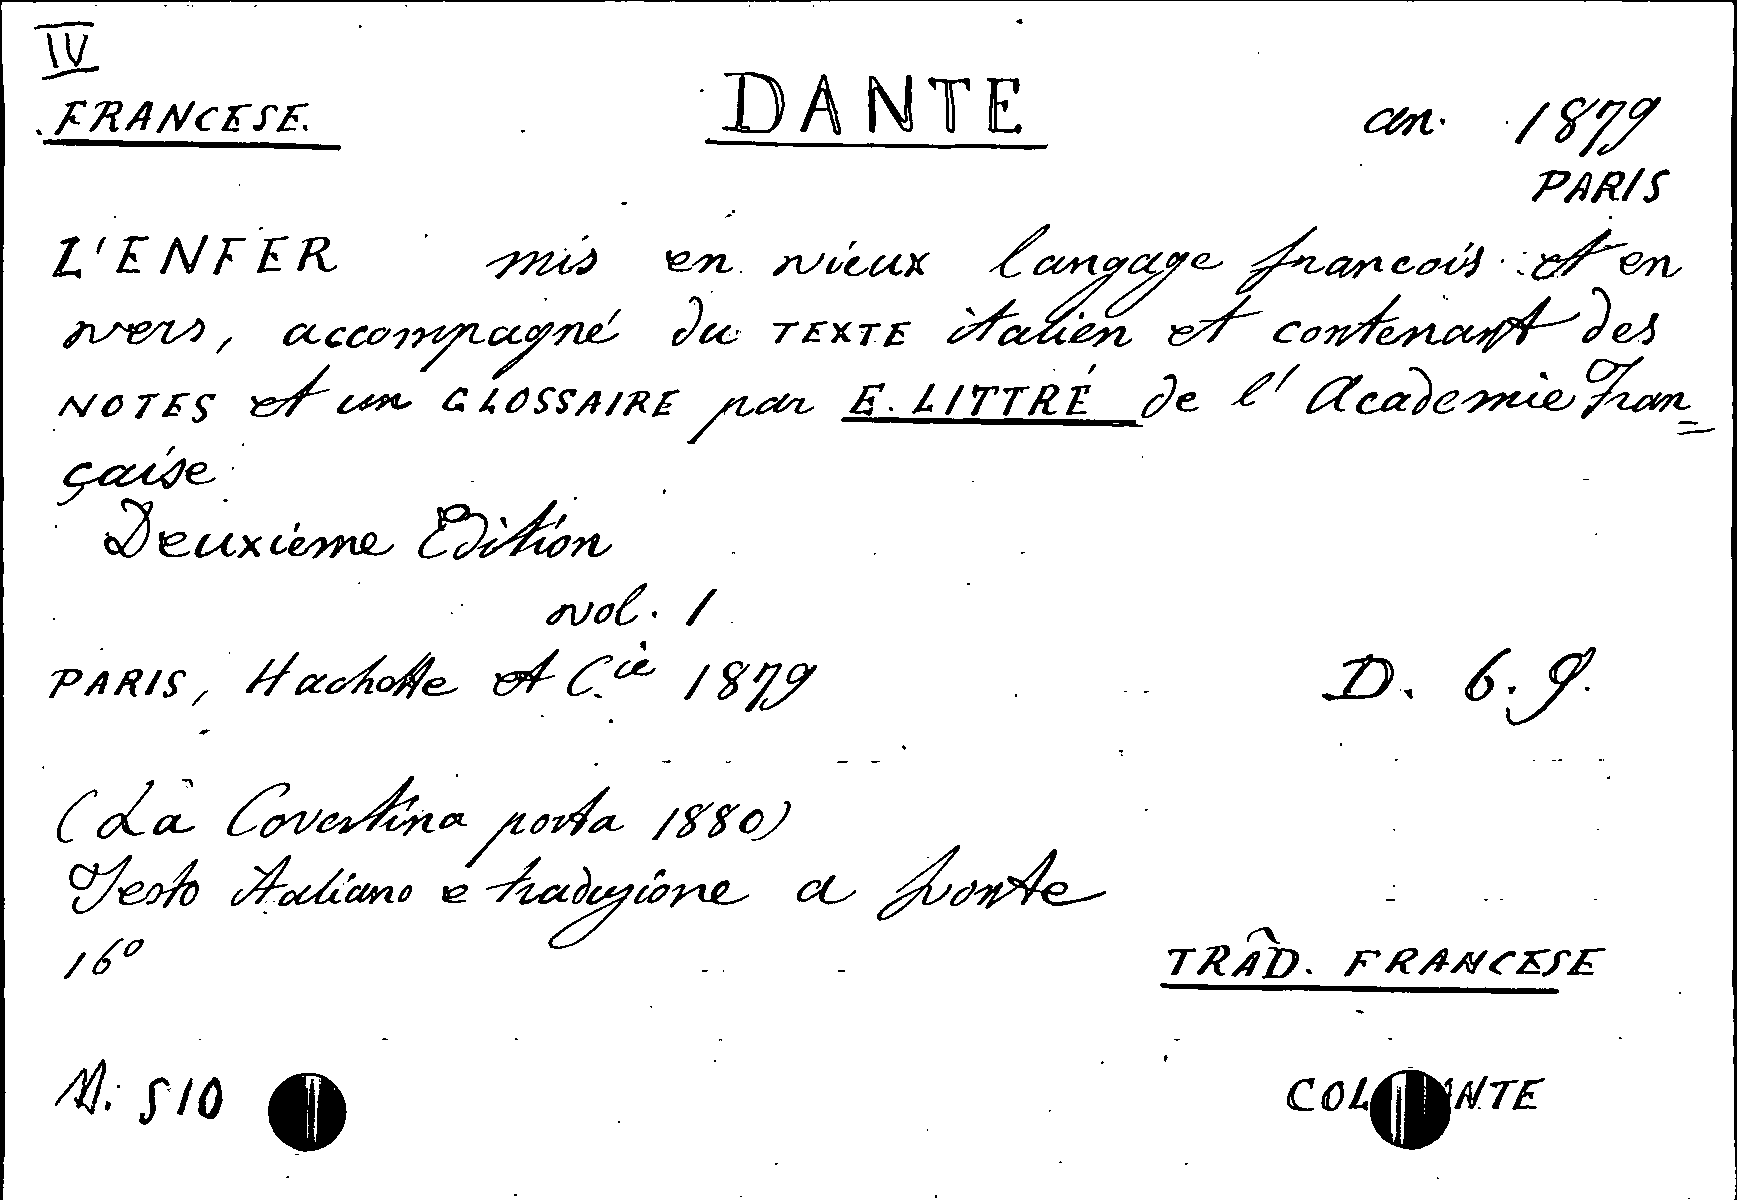 IV
FRANCESE. DANTE an. 1879
PARIS
L'ENFER mis en vieux langage francois et en
vers, accompagné du TEXTE italien et contenant des
NOTES et un GLOSSAIRE par E. LITTRÉ de l'Academie Fran=
çaise
Deuxième Edition
vol. 1
PARIS, Hachette et C.ie 1879 D. 6. 9.
(La Covertina porta 1880)
Testo italiano e traduzione a fronte
16°
TRAD. FRANCESE
N. 510 COL ANTE